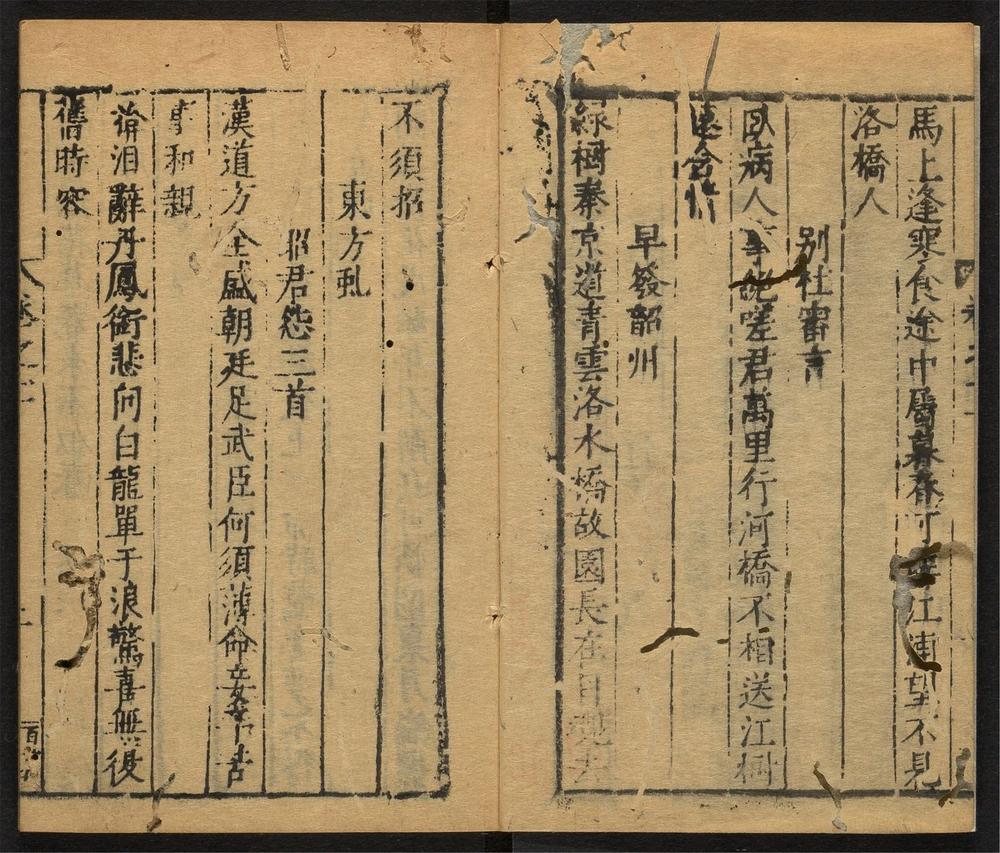 馬上逢寒食途中屬暮春可 江浦望不見
洛橋人
別杜審言
臥病人事絕嗟君萬里行河橋不相送江樹
遠含情
早發韶州
綠樹秦京道青雲洛水橋故園長在目魂去
不須招
東方虬
昭君怨三首
漢道方全盛朝廷足武臣何須薄命妾辛苦
事和親
揜淚辭丹鳳銜悲向白龍單于浪驚喜無復
舊時容